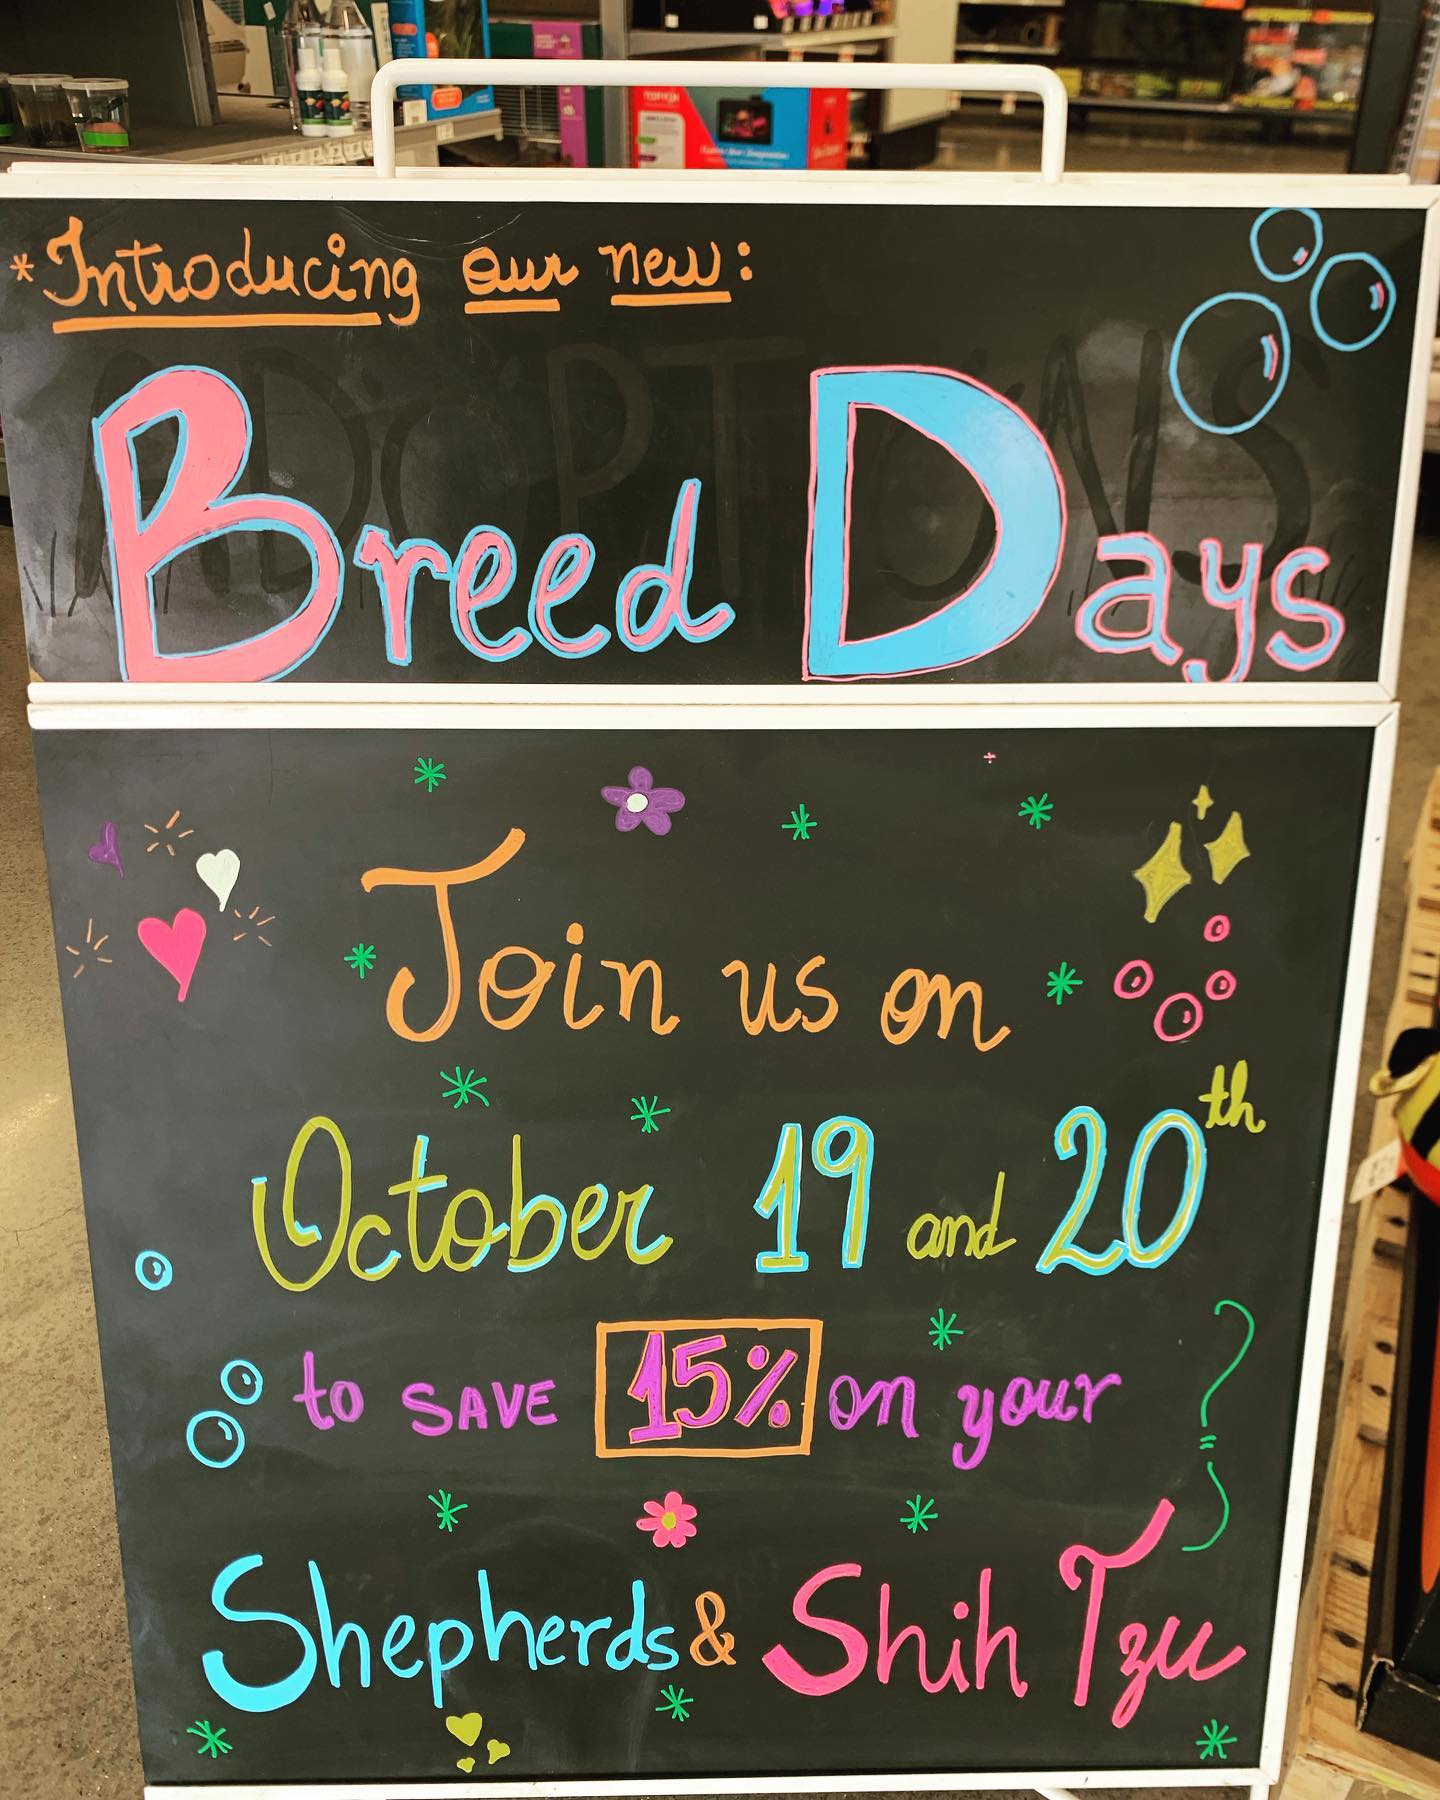 *Introducing our new:
ADOPTIONS
Breed Days
Join us on
October 19 and 20th
to SAVE 15% on your
Shepherds & Shih Tzu